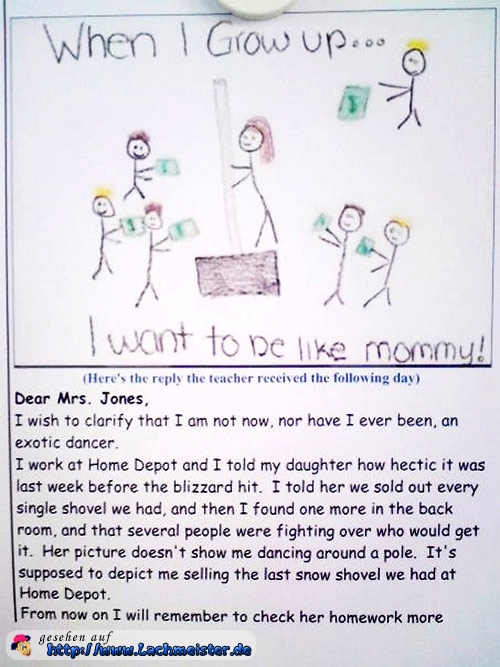 When I Grow up...
I want to be like mommy!
(Here's the reply the teacher received the following day)
Dear Mrs. Jones,
I wish to clarify that I am not now, nor have I ever been, an
exotic dancer.
I work at Home Depot and I told my daughter how hectic it was
last week before the blizzard hit. I told her we sold out every
single shovel we had, and then I found one more in the back
room, and that several people were fighting over who would get
it. Her picture doesn't show me dancing around a pole. It's
supposed to depict me selling the last snow shovel we had at
Home Depot.
From now on I will remember to check her homework more
gesehen auf
http://www.Lachmeister.de